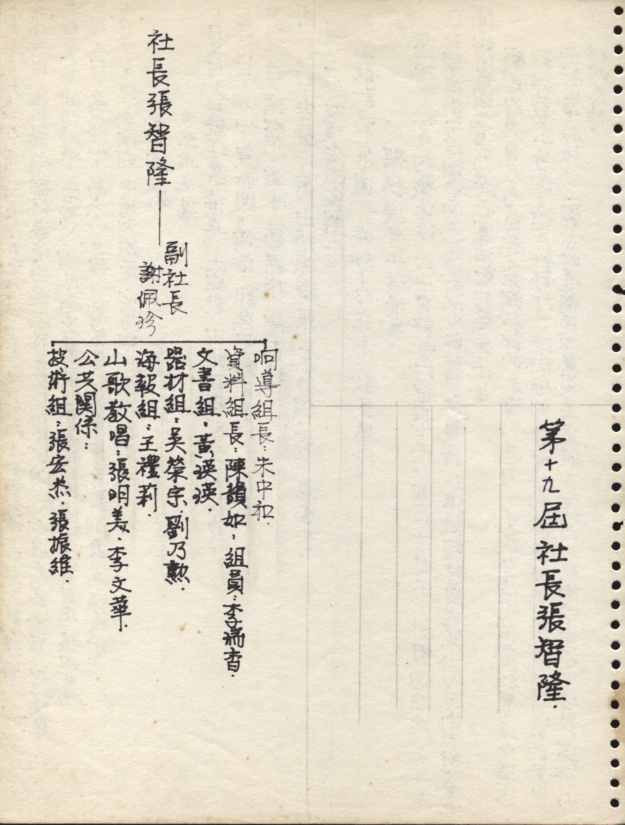 第十九屆社長張智隆.
社長張智隆
副社長
謝佩珍
响導組長:朱中和.
資料組長:陳韻如,組員:李瑞香.
文書組:黃瑛瑛
器材組:吳榮宗.劉乃勲.
海報組:王禮莉.
山歌教唱:張明美.李文華.
公共關係:
技術組:張宏杰.張振維.